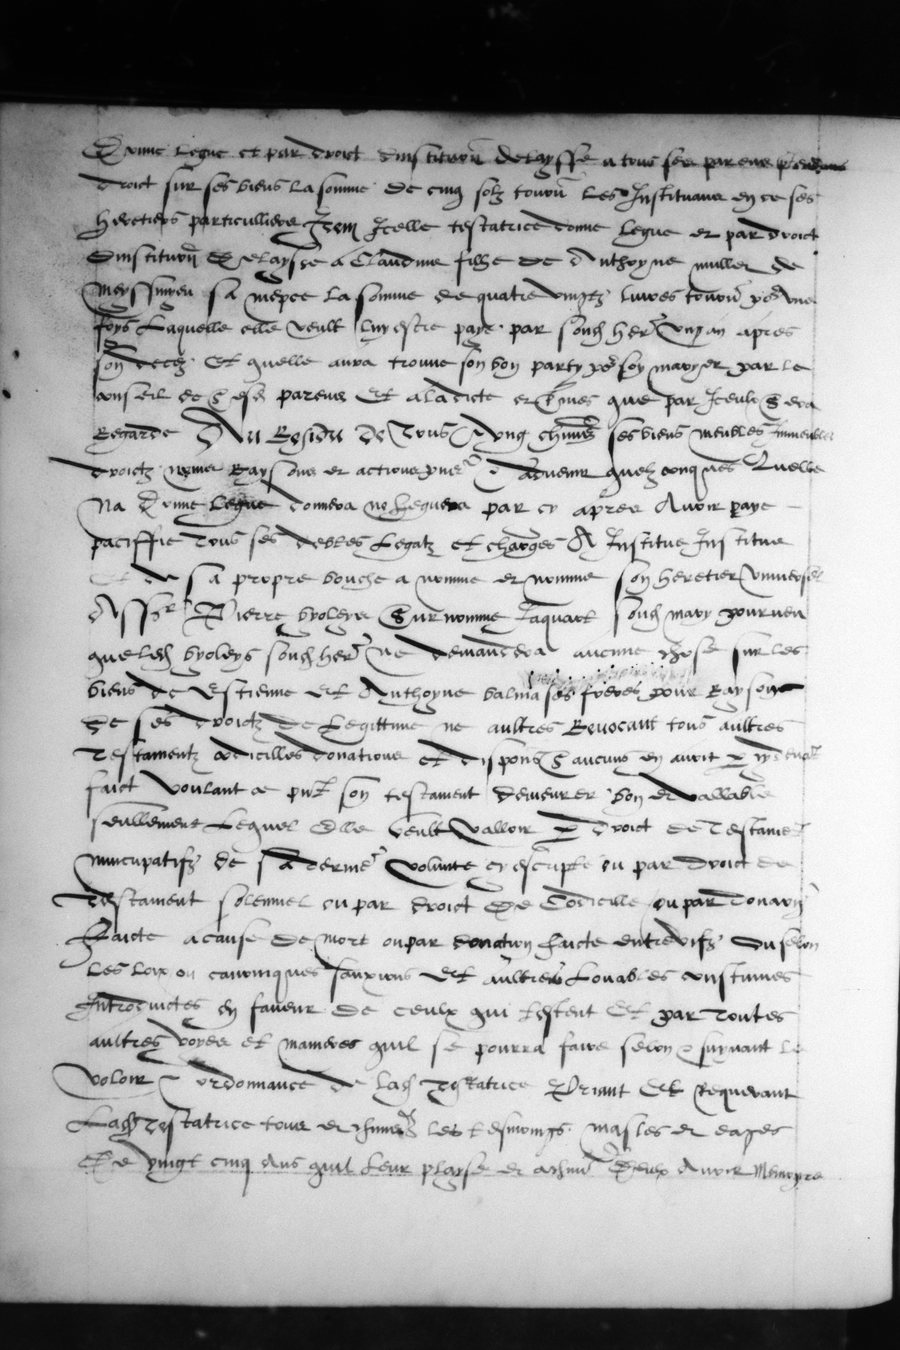 Donne legue et par droit dinstitution delaysse a tous ses parens pretendans
droict sur ses biens la somme de cinq solz tourn les Instituant en ce ses
heretiers particulliers Item Icelle testatrice donne legue et par droict
dinstitution Delaysse a Claudine fille de Anthoyne muller de
Meyssimyeu sa niepce la somme de quatre vingtz livres tourn per une
foys Laquelle elle veult luy estre paye par sond her ung an apres
son deces Et quelle aura trouve son bon party per soy maryer par le
conseil de Sesd parens Et a la dicte er mes que par Iceulx Sera
Regarde Au Residu De Tous Et ung chascungs ses biens meubles Immeubles
droictz noms Raysons et actions pns Et advenir quelz conques Quelle
Na Donne Legue donnera ne leguera par cy apres Avoir paye
paciffie Tous ses debtes Legatz et charges A Institue Institue
Et de sa propre bouche a nomme et nomme son heretier Universel
Assr Pierre byoleys Surnomme Jaquart sond mary pourveu
que led byoleys sond her ne demandera aucune chose sur les
biens de Estienne Et Anthoyne balma ses freres pour Rayson
de ses droictz De Legittime ne aultres Revocant tous aultres
Testamentz codicilles donations et dispons S aucuns en avoit p cydevat
faict voulant ce pnt son testament demeurer bon et vallable
seullement Lequel Elle veult Valloir p Droict de Testamet
Nuncupatifz de sa derniere volunte cy escripte ou par Droict de
Testament solemnel ou par droict De Codicille ou par donation
Faicte a cause De mort ou par donation faicte entrevifz Ou selon
les loix ou canoniques sanxions Et aultres Louables coustumes
Introduictes en faveur De ceulx qui testent Et par Toutes
aultres voyes et manieres quil se pourra faire selon & suyvant le
Voloir & ordonnance de lad Testatrice Priant Et Requerant
Lad Testatrice tous et chuns les tesmoings masles et eages
De vingt cinq Ans quil Leur playse et a chun Deulx Avoir Memoyre